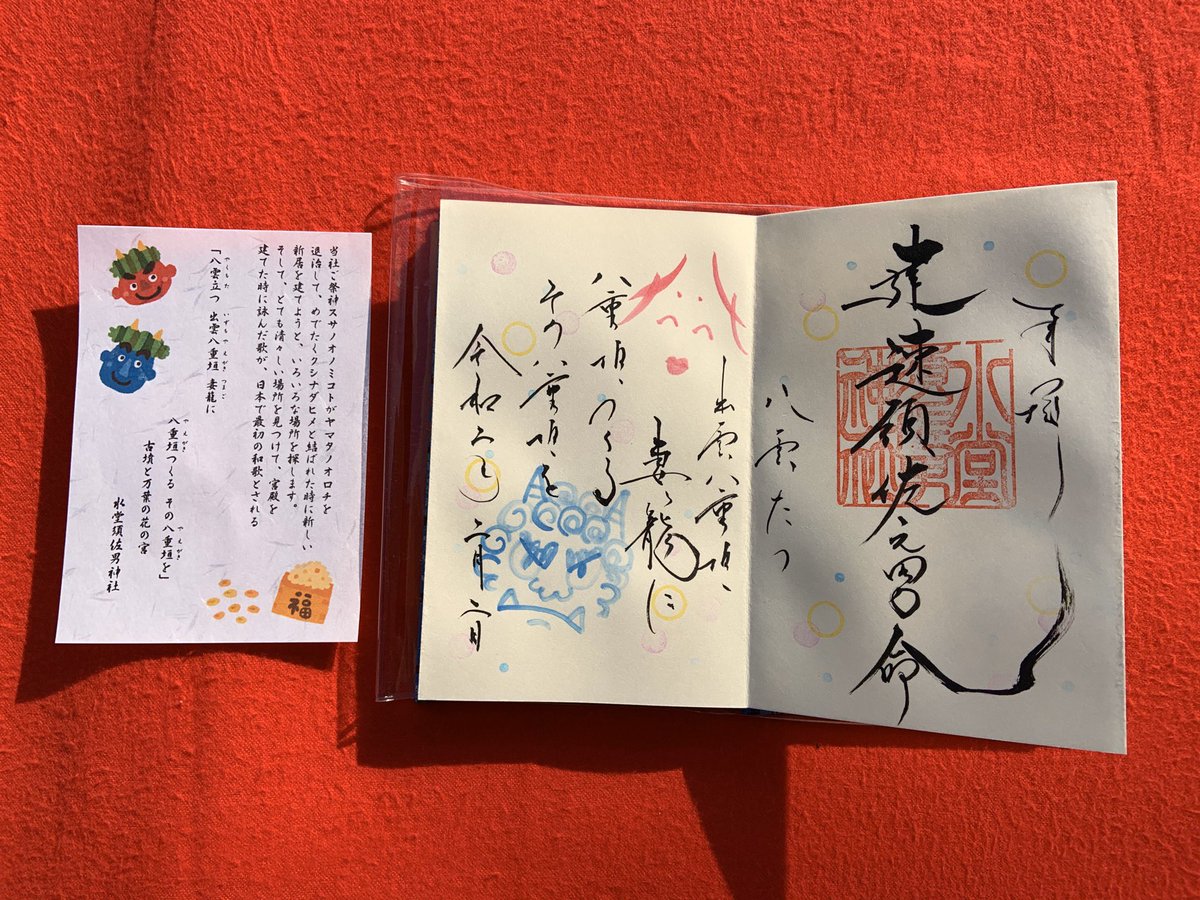 奉拝
建速須佐之男命
水堂
須佐男
神社
八雲たつ
出雲八重垣
妻籠に
八重垣つくる
その八重垣を
令和 二月二日
当社ご祭神スサノオノミコトがヤマタノオロチを
退治して、めでたくクシナダヒメと結ばれた時に新しい
新居を建てようと、いろいろな場所を探します。
そして、とても清々しい場所を見つけて、宮殿を
建てた時に詠んだ歌が、日本で最初の和歌とされる
「八雲立つ 出雲八重垣 妻籠に
やくもた いずもやえがき つまご
八重垣つくる その八重垣を」
やえがき やえがき
古墳と万葉の花の宮
水堂須佐男神社
福